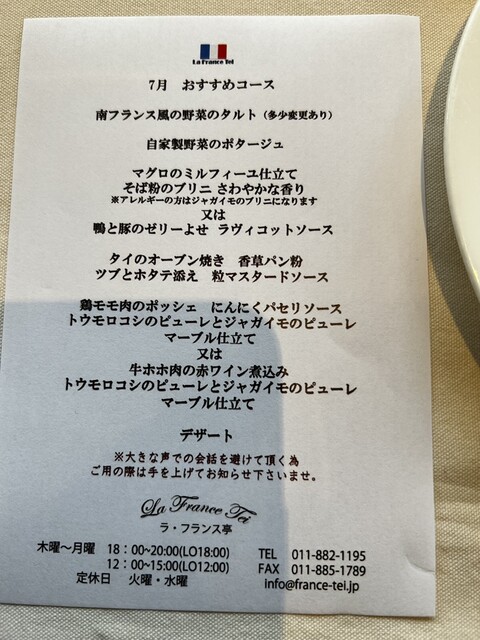 La France Tei
7月 おすすめコース
南フランス風の野菜のタルト（多少変更あり）
自家製野菜のポタージュ
マグロのミルフィーユ仕立て
そば粉のブリニ さわやかな香り
※アレルギーの方はジャガイモのブリニになります
又は
鴨と豚のゼリーよせ ラヴィコットソース
タイのオーブン焼き 香草パン粉
ツブとホタテ添え 粒マスタードソース
鶏モモ肉のポッシェ にんにくパセリソース
トウモロコシのピューレとジャガイモのピューレ
マーブル仕立て
又は
牛ホホ肉の赤ワイン煮込み
トウモロコシのピューレとジャガイモのピューレ
マーブル仕立て
デザート
※大きな声での会話を避けて頂く為
ご用の際は手を上げてお知らせ下さいませ。
La France Tei
ラ・フランス亭
木曜～月曜 18：00~20:00(LO18:00) TEL 011-882-1195
12：00~15:00(LO12:00) FAX 011-885-1789
定休日 火曜・水曜 info@france-tei.jp